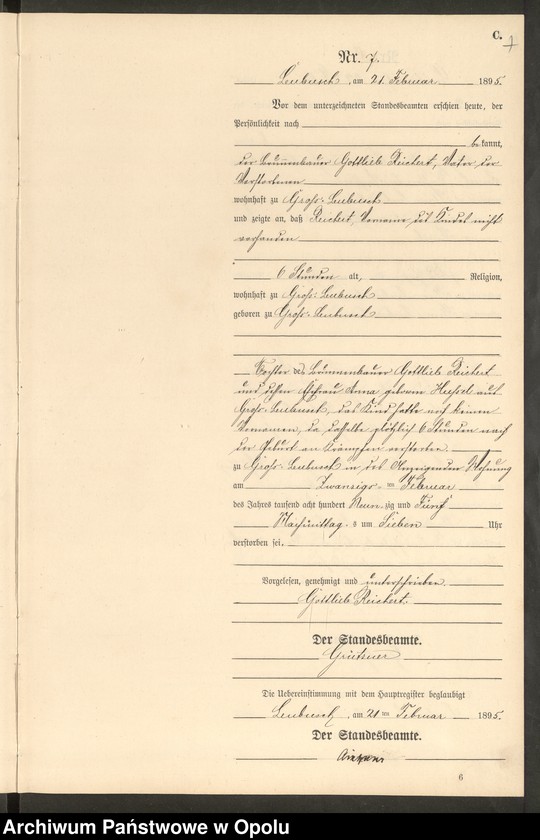 C.
7
Nr. 7.
Leubusch, am 21. Februar 1895.
Vor dem unterzeichneten Standesbeamten erschien heute, der
Persönlichkeit nach
be kannt,
der Brunnenbauer Gottlieb Reichert, Vater der
Verstorbenen
wohnhaft zu Groß-Leubusch
und zeigte an, daß Reichert, Vorname des Kindes nicht
vorhanden
6 Stunden alt, Religion,
wohnhaft zu Groß-Leubusch
geboren zu Groß-Leubusch
Tochter des Brunnenbauer Gottlieb Reichert
und dessen Ehefrau Anna geboren aus
Groß-Leubusch, das Kind hatte noch keinen
Vornamen, da dasselbe plötzlich 6 Stunden nach
der Geburt an Krämpfen verstorben.
zu Groß-Leubusch in des Anzeigenden Wohnung
am Zwanzigsten Februar
des Jahres tausend acht hundert Neunzig und Fünf
Nachmittag s um Sieben Uhr
verstorben sei.
Vorgelesen, genehmigt und unterschrieben.
Gottlieb Reichert.
Der Standesbeamte.
Die Uebereinstimmung mit dem Hauptregister beglaubigt
Leubusch, am 21ten Februar 1895.
Der Standesbeamte.
6
Archiwum Państwowe w Opolu